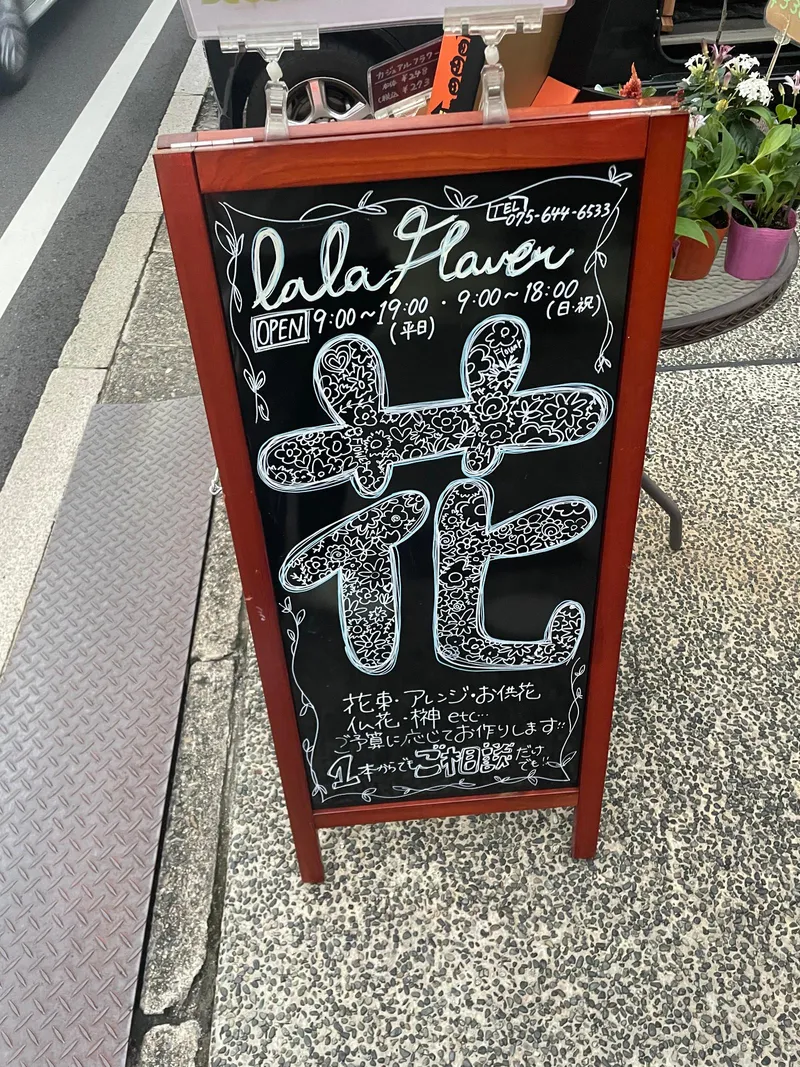 カジュアルフラワー
本体 ¥248
(税込 ¥273
TEL
075-644-6533
lala Flaver
OPEN 9:00~19:00・9:00~18:00
(平日) (日・祝)
Flower
花
花束・アレンジ・お供花
仏花・榊 etc…
ご予算に応じてお作りします!!
1本からでもご相談だけでも!!